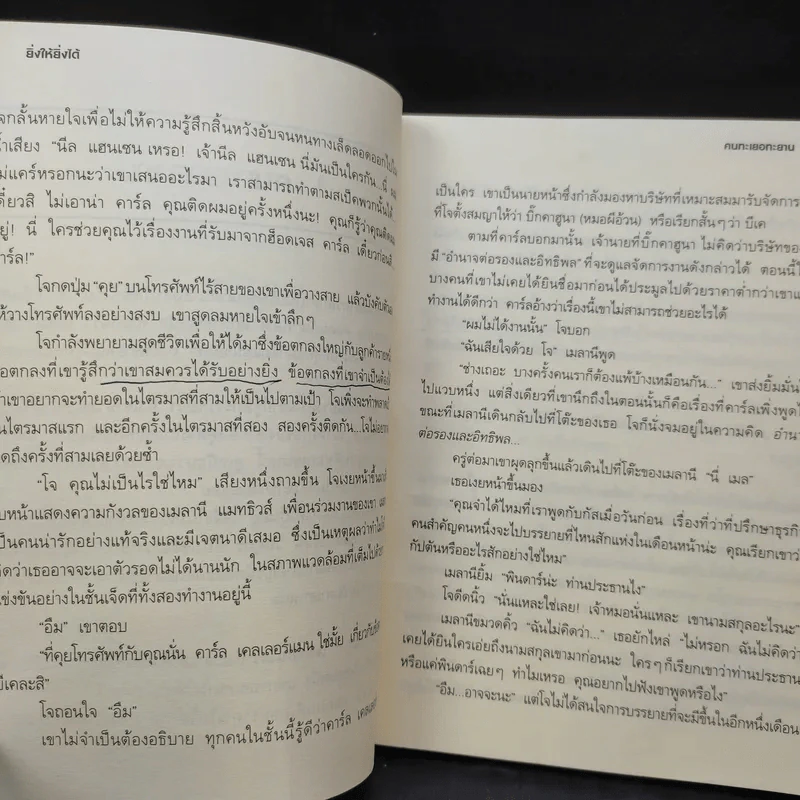 ยิ่งให้ยิ่งได้
กลั้นหายใจเพื่อไม่ให้ความรู้สึกสิ้นหวังอับจนหนทางเล็ดลอดออกไปใน
น้ำเสียง “นีล แฮนเซน เหรอ! เจ้านีล แฮนเซน นี่มันเป็นใครกัน...นี่ ผม
ไม่แคร์หรอกนะว่าเขาเสนออะไรมา เราสามารถทำตามสเป็คพวกนั้นได้
เดี๋ยวสิ ไม่เอาน่า คาร์ล คุณติดผมอยู่ครั้งหนึ่งนะ! คุณก็รู้ว่าคุณติดผม
อยู่! นี่ ใครช่วยคุณไว้เรื่องงานที่รับมาจากฮ็อดเจส คาร์ล เดี๋ยวก่อนสิ
คาร์ล!”
โจกดปุ่ม “คุย” บนโทรศัพท์ไร้สายของเขาเพื่อวางสาย แล้วบังคับตัวเอง
ให้วางโทรศัพท์ลงอย่างสงบ เขาสูดลมหายใจเข้าลึกๆ
โจกำลังพยายามสุดชีวิตเพื่อให้ได้มาซึ่งข้อตกลงใหญ่กับลูกค้ารายหนึ่ง
ข้อตกลงที่เขารู้สึกว่าเขาสมควรได้รับอย่างยิ่ง ข้อตกลงที่เขาจำเป็นต้องได้
ถ้าเขาอยากจะทำยอดในไตรมาสที่สามให้เป็นไปตามเป้า โจเพิ่งจะทำพลาดเป้า
ในไตรมาสแรก และอีกครั้งในไตรมาสที่สอง สองครั้งติดกัน...โจไม่อยาก
คิดถึงครั้งที่สามเลยด้วยซ้ำ
“โจ คุณไม่เป็นไรใช่ไหม” เสียงหนึ่งถามขึ้น โจเงยหน้าขึ้นมา
พบหน้าแสดงความกังวลของเมลานี แมทธิวส์ เพื่อนร่วมงานของเขา
เป็นคนน่ารักอย่างแท้จริงและมีเจตนาดีเสมอ ซึ่งเป็นเหตุผลว่าทำไมโจ
คิดว่าเธออาจจะเอาตัวรอดไม่ได้นานนัก ในสภาพแวดล้อมที่เต็มไปด้วยการ
แข่งขันอย่างในชั้นเจ็ดที่ทั้งสองทำงานอยู่นี้
“อืม” เขาตอบ
“ที่คุยโทรศัพท์กับคุณนั่น คาร์ล เคลเลอร์แมน ใช่มั้ย เกี่ยวกับเรื่อง
บีเคละสิ”
โจถอนใจ “อืม”
เขาไม่จำเป็นต้องอธิบาย ทุกคนในชั้นนี้รู้ดีว่าคาร์ล เคลเลอร์
คนทะเยอทะยาน
เป็นใคร เขาเป็นนายหน้าซึ่งกำลังมองหาบริษัทที่เหมาะสมมารับจัดการ
ที่โจตั้งสมญาให้ว่า บิ๊กคาฮูนา (หมอผีอ้วน) หรือเรียกสั้นๆ ว่า บีเค
ตามที่คาร์ลบอกมานั้น เจ้านายที่บิ๊กคาฮูนา ไม่คิดว่าบริษัทของ
มี “อำนาจต่อรองและอิทธิพล” ที่จะดูแลจัดการงานดังกล่าวได้ ตอนนี้
บางคนที่เขาไม่เคยได้ยินชื่อมาก่อนได้ประมูลไปด้วยราคาต่ำกว่าเขาและ
ทำงานได้ดีกว่า คาร์ลอ้างว่าเรื่องนี้เขาไม่สามารถช่วยอะไรได้
“ผมไม่ได้งานนั้น” โจบอก
“ฉันเสียใจด้วย โจ” เมลานีพูด
“ช่างเถอะ บางครั้งคนเราก็ต้องแพ้บ้างเหมือนกัน...” เขาส่งยิ้มมั่น
ไปแวบหนึ่ง แต่สิ่งเดียวที่เขานึกถึงในตอนนั้นก็คือเรื่องที่คาร์ลเพิ่งพูดไป
ขณะที่เมลานีเดินกลับไปที่โต๊ะของเธอ โจก็นั่งจมอยู่ในความคิด อำนาจ
ต่อรองและอิทธิพล...
ครู่ต่อมาเขาผุดลุกขึ้นแล้วเดินไปที่โต๊ะของเมลานี “นี่ เมล”
เธอเงยหน้าขึ้นมอง
“คุณจำได้ไหมที่เราพูดกับกัสเมื่อวันก่อน เรื่องที่ว่าที่ปรึกษาธุรกิจ
คนสำคัญคนหนึ่งจะไปบรรยายที่ไหนสักแห่งในเดือนหน้าน่ะ คุณเรียกเขาว่า
กัปตันหรืออะไรสักอย่างใช่ไหม”
เมลานียิ้ม “พินดาร์น่ะ ท่านประธานไง”
โจดีดนิ้ว “นั่นแหละใช่เลย! เจ้าหมอนั่นแหละ เขานามสกุลอะไรนะ”
เมลานีขมวดคิ้ว “ฉันไม่คิดว่า...” เธอยักไหล่ “ไม่หรอก ฉันไม่คิดว่า
เคยได้ยินใครเอ่ยถึงนามสกุลเขามาก่อนนะ ใครๆ ก็เรียกเขาว่าท่านประธาน
หรือแค่พินดาร์เฉยๆ ทำไมเหรอ คุณอยากไปฟังเขาพูดหรือไง”
“อืม...อาจจะนะ” แต่โจไม่ได้สนใจการบรรยายที่จะมีขึ้นในอีกหนึ่งเดือน